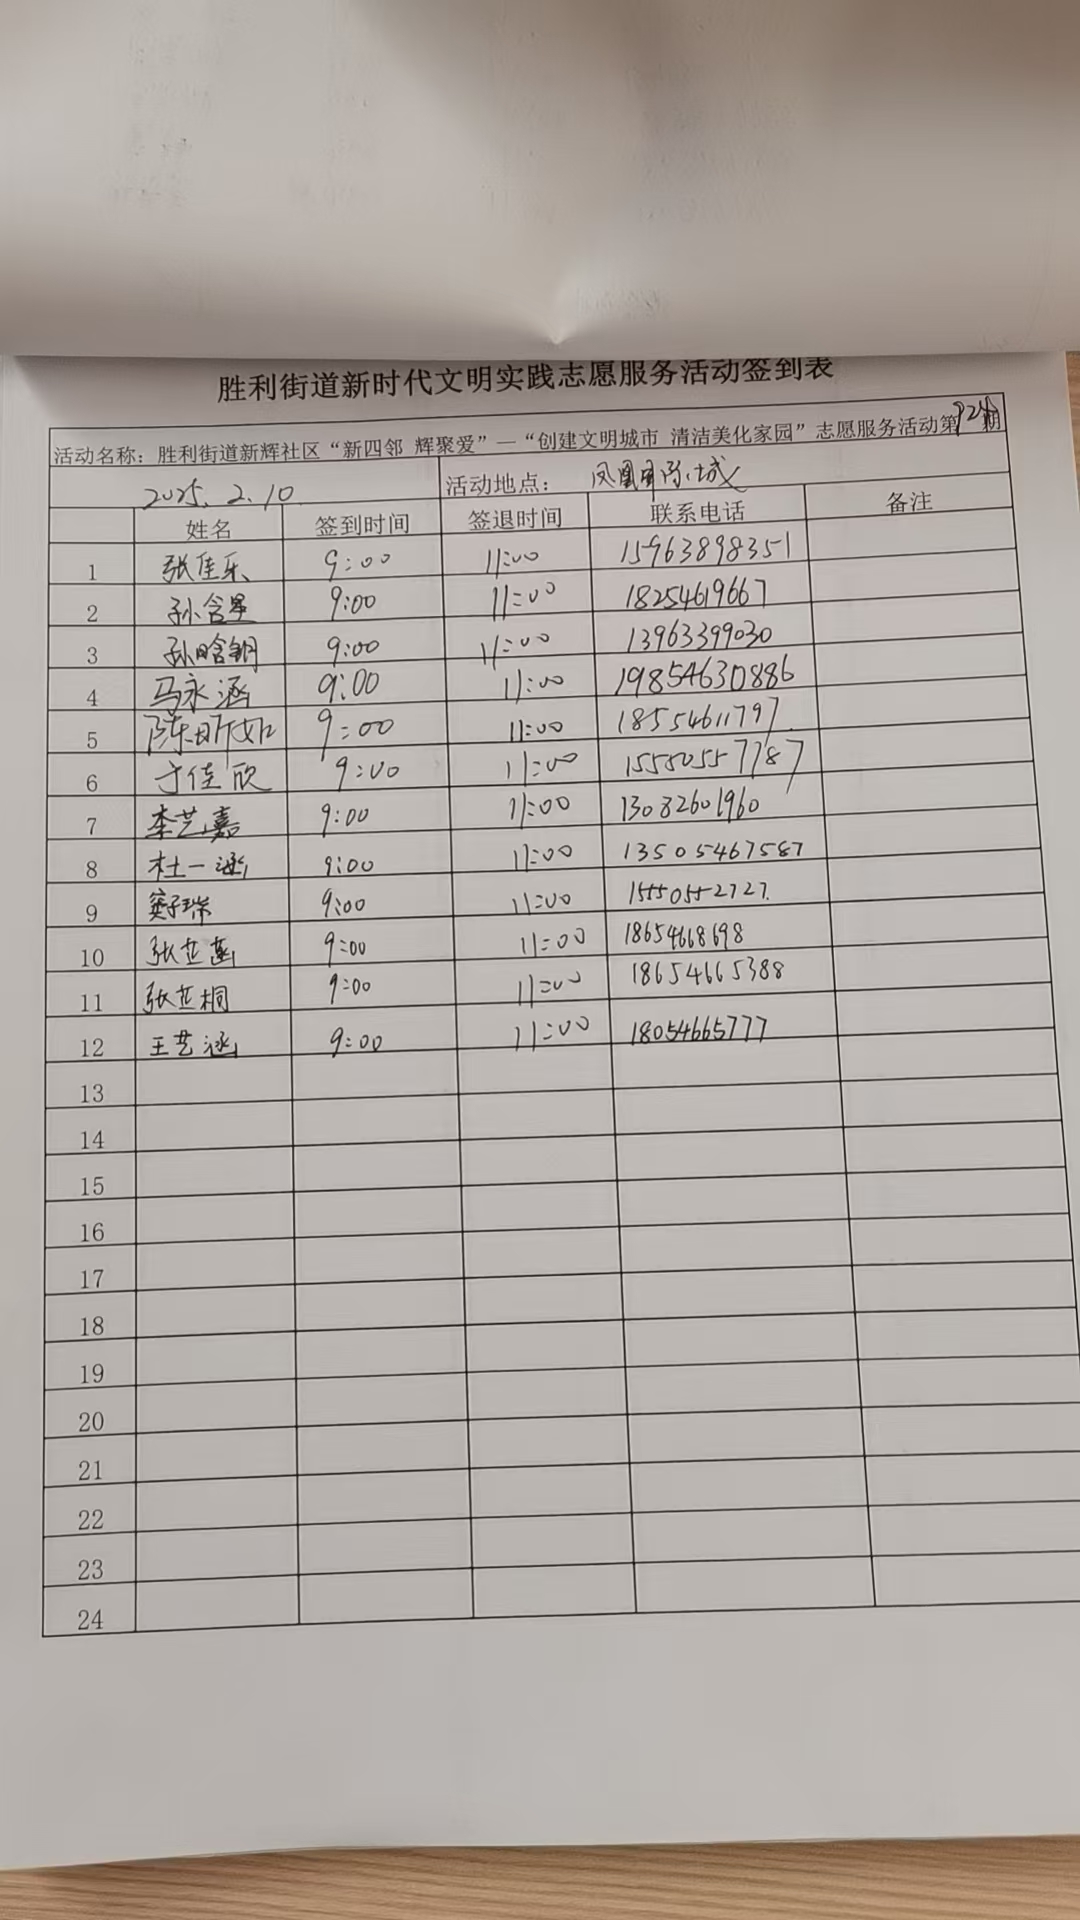 胜利街道新时代文明实践志愿服务活动签到表
活动名称：胜利街道新辉社区“新四邻 辉聚爱”—“创建文明城市 清洁美化家园”志愿服务活动第924期
2025.2.10 活动地点：凤凰城
姓名 签到时间 签退时间 联系电话 备注
1 张佳乐 9:00 11:00 15963898351
2 孙含星 9:00 11:00 18254619667
3 孙晗钥 9:00 11:00 13963399030
4 马永涵 9:00 11:00 19854630886
5 陈昕如 9:00 11:00 18554611797
6 于佳欣 9:00 11:00 15550557787
7 李艺嘉 9:00 11:00 13082601960
8 杜一涵 9:00 11:00 13505467587
9 9:00 11:00 15550552727
10 张芷菡 9:00 11:00 18654668698
11 张芷桐 9:00 11:00 18654665388
12 王艺涵 9:00 11:00 18054665777
13
14
15
16
17
18
19
20
21
22
23
24